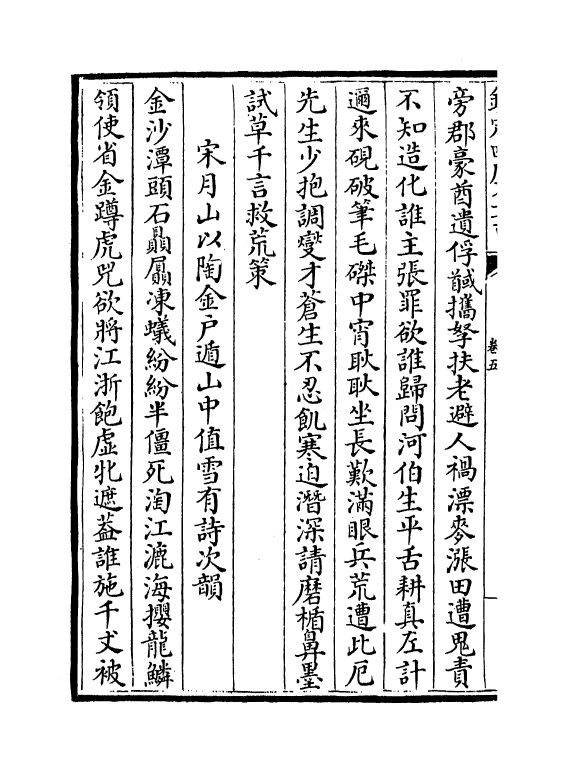 旁郡豪酋遺俘馘攜孥扶老避人禍漂麥漲田遭鬼責
不知造化誰主張罪欲誰歸問河伯生平舌耕真左計
邇來硯破筆毛磔中宵耿耿坐長歎滿眼兵荒遭此厄
先生少抱調燮才蒼生不忍飢寒迫潛深請磨楯鼻墨
試草千言救荒策
宋月山以陶金户遁山中值雪有詩次韻
金沙潭頭石贔屭凍蟻紛紛半僵死淘江漉海攖龍鱗
領使省金蹲虎兕欲將江浙飽虛牝遮葢誰施千丈被
卷五